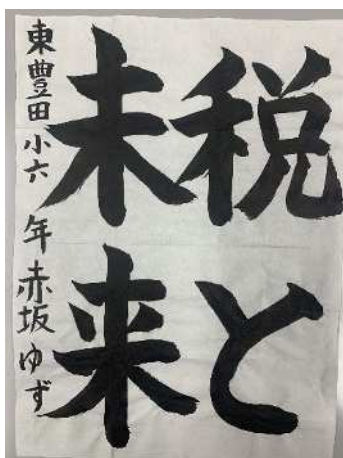 税と
未来
東豊田小六年赤坂ゆず